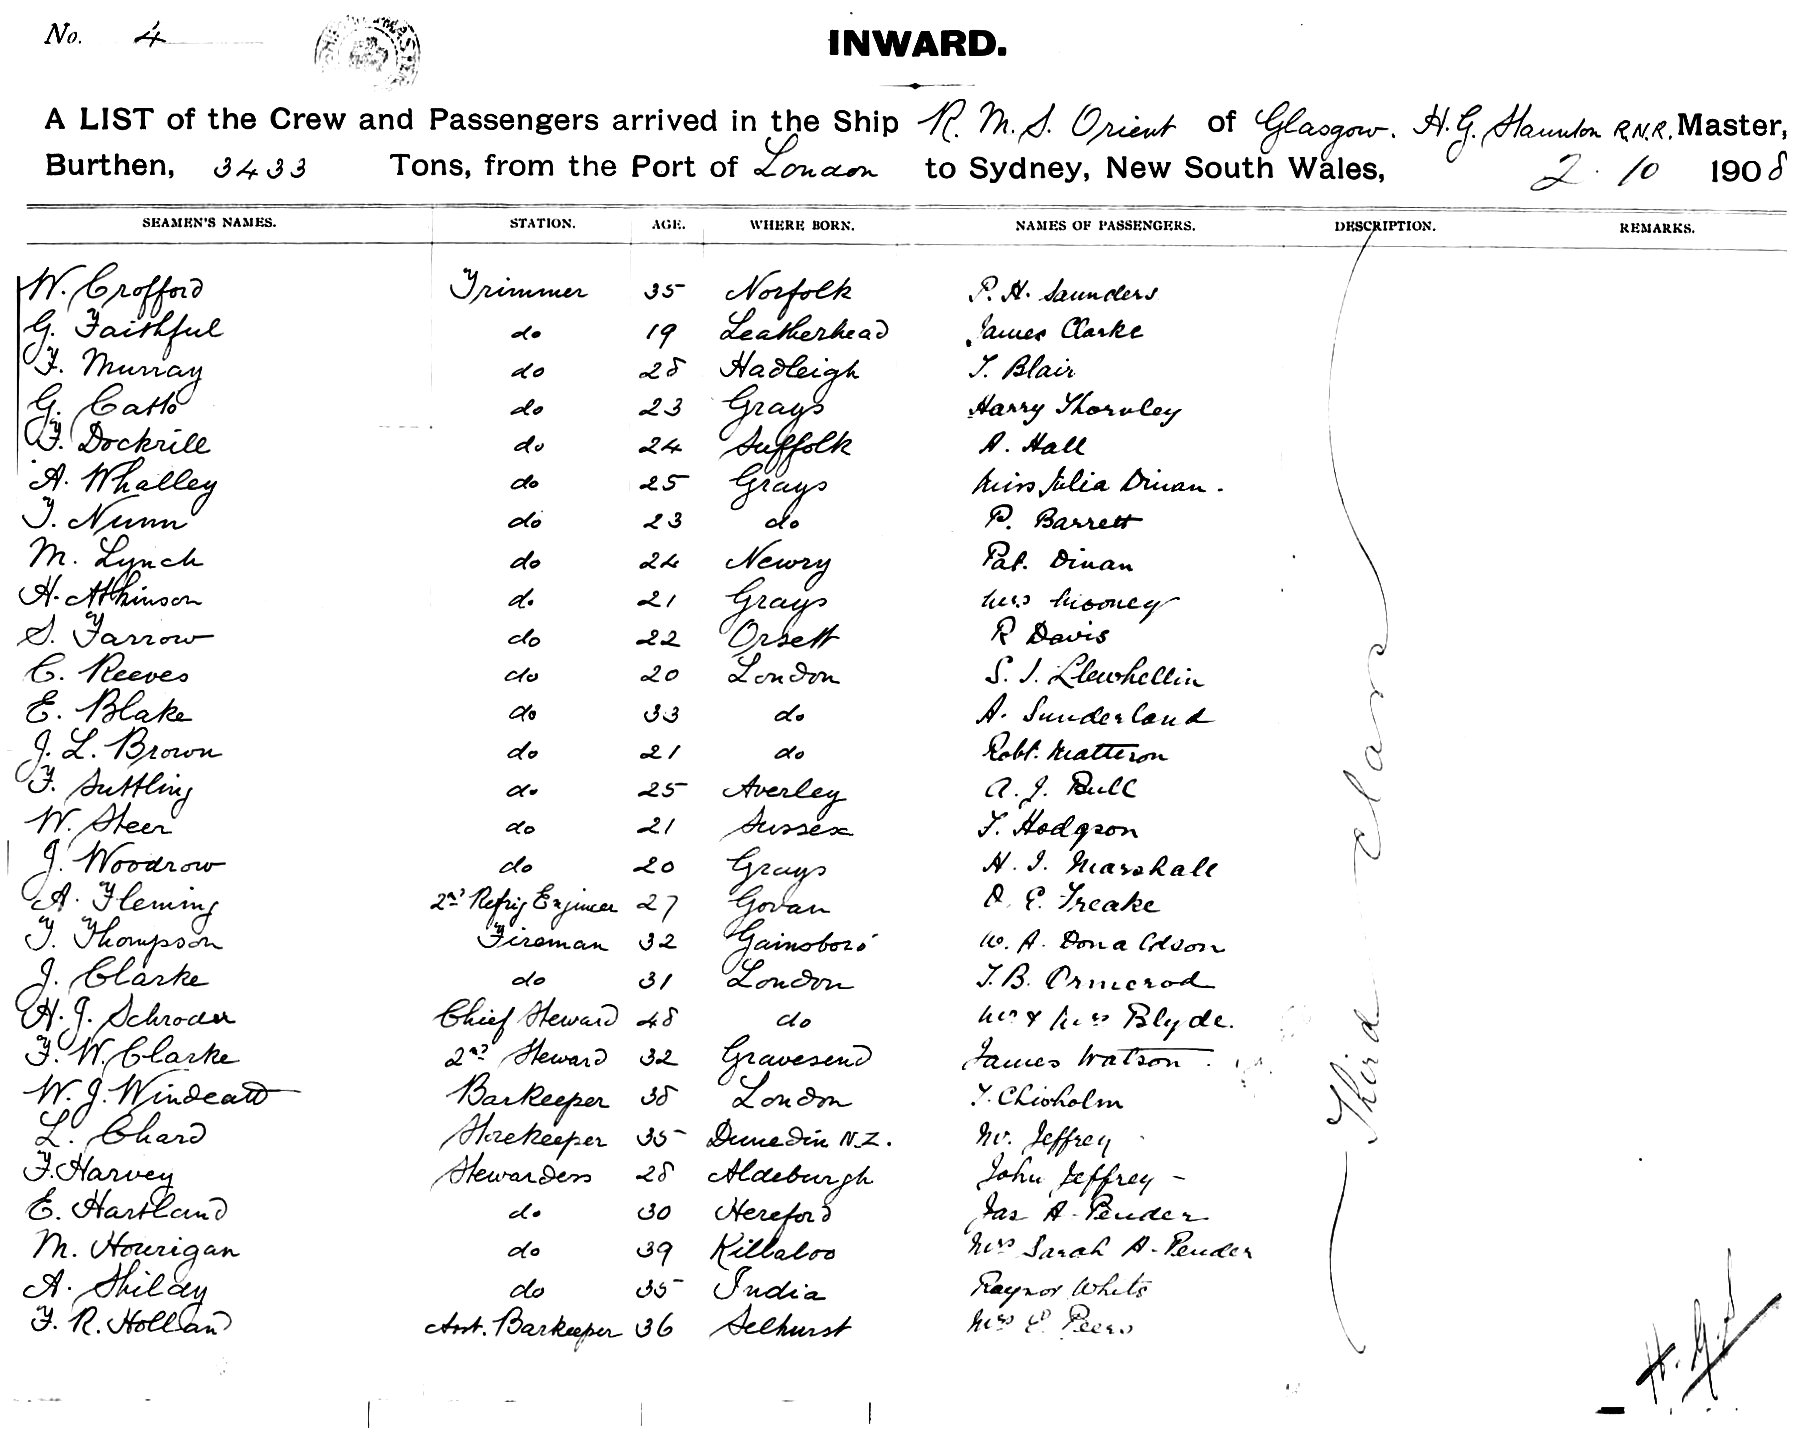 No. 4
INWARD.
A LIST of the Crew and Passengers arrived in the Ship R. M. S. Orient of Glasgow. H. G. Staunton R.N.R. Master,
Burthen, 3433 Tons, from the Port of London to Sydney, New South Wales, 2. 10 1908
SEAMEN'S NAMES. STATION. AGE. WHERE BORN. NAMES OF PASSENGERS. DESCRIPTION. REMARKS.
W. Crofford Trimmer 35 Norfolk P. H. Saunders
G. Faithful do 19 Leatherhead James Clarke
F. Murray do 28 Hadleigh T. Blair
G. Catto do 23 Grays Harry Thornley
F. Dockrill do 24 Suffolk A. Hall
A. Whalley do 25 Grays Miss Julia Dinan.
T. Nunn do 23 do P. Barrett
M. Lynch do 24 Newry Pat. Dinan
H. Atkinson do 21 Grays Mrs Mooney
S. Farrow do 22 Orsett R Davis
C. Reeves do 20 London S. J. Llewhellin
E. Blake do 33 do A. Sunderland
J. L. Brown do 21 do Robt. Matterson
F. Suttling do 25 Averley A. J. Bull
W. Steer do 21 Sussex T. Hodgson
J. Woodrow do 20 Grays H. I. Marshall
A. Fleming 2nd Refrig Engineer 27 Govan A. E. Freake
T. Thompson Fireman 32 Gainsboro' W. A. Donaldson
J. Clarke do 31 London T. B. Ormerod
H. J. Schroder Chief Steward 48 do Mr & Mrs Blyde.
F. W. Clarke 2nd Steward 32 Gravesend James Watson.
W. J. Windeatt Barkeeper 38 London T. Chisholm
L. Chard Storekeeper 35 Dunedin N.Z. Mr. Jeffrey
F. Harvey Stewardess 28 Aldeburgh John Jeffrey -
E. Hartland do 30 Hereford Jas A. Pender
M. Hourigan do 39 Killaloo Mrs Sarah A. Pender
A. Shildy do 35 India Raynor White
F. R. Holland Asst. Barkeeper 36 Selhurst Mrs E. Peers
Third Class
H. G. S